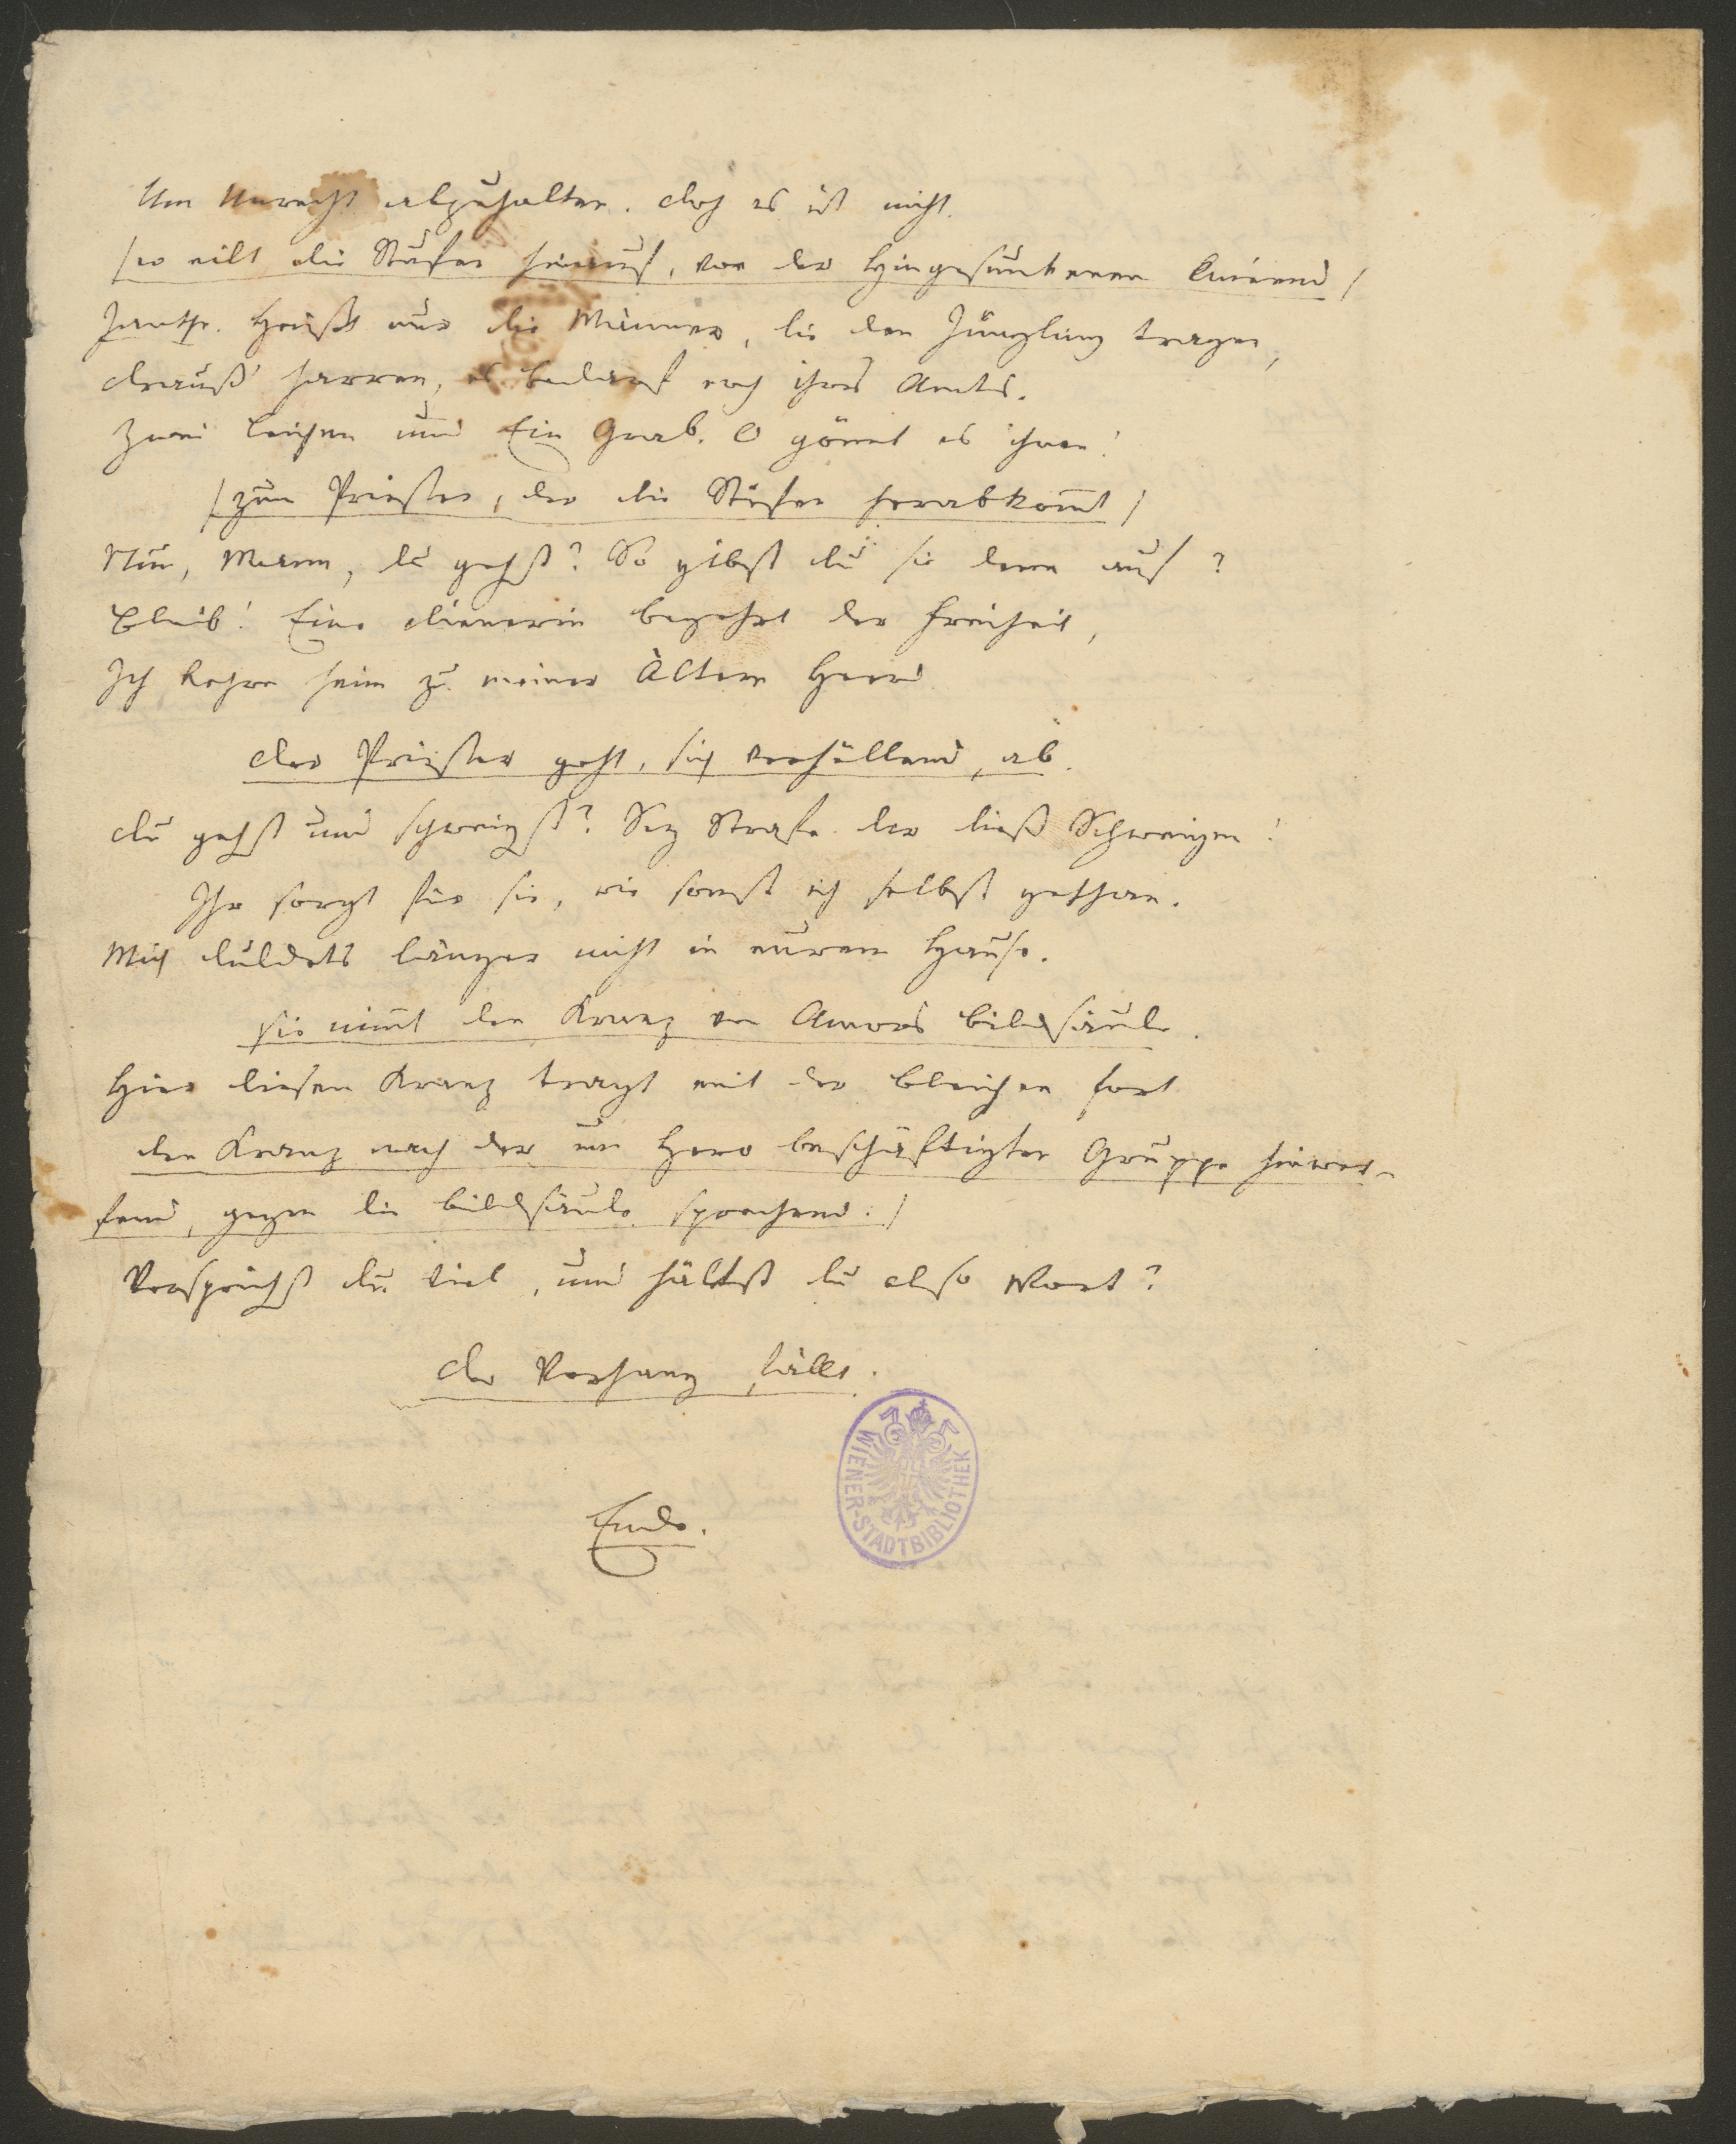 Um Unrecht abzuhalten. doch es ist nicht.
/er eilt die Stufen hinauf, vor der Hingesunkenen knieend/
Janthe. Heißt nur die Männer, die den Jüngling tragen,
drauß' harren, es bedarf noch ihres Amts.
Zwei Leichen und Ein Grab. O gönnt es ihnen!
/zum Priester, der die Stufen herabkom̅t/
Nun, Mann, du gehst? So gibst du sie denn auf?
Bleib! Eine dienerin begehrt der Freiheit,
Ich kehre heim zu meiner Ältern Heerd
der Priester geht, sich verhüllend, ab.
du gehst und schweigst? Sey Strafe dir dieß Schweigen!
Ihr sorgt für sie, wie sonst ich selbst gethan.
Mich duldets länger nicht in eurem Hause.
sie nim̅t den Kranz von Amors bildsäule.
Hier diesen Kranz tragt mit der bleichen fort
den Kranz nach der um Hero beschäftigten Gruppe hinwer-
fend, gegen die bildsäule sprechend:/
Versprichst du viel, und hältst du also Wort?
der Vorhang fällt.
Ende.
WIENER-STADTBIBLIOTHEK